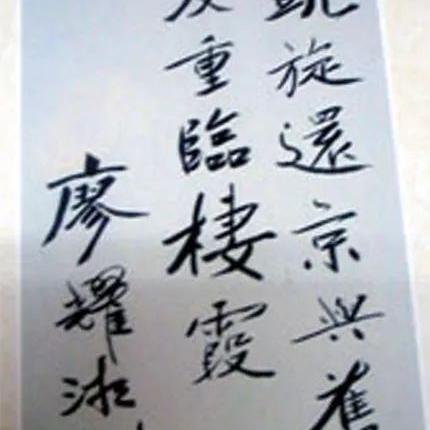 凱旋還京與舊
友重臨棲霞
廖耀湘